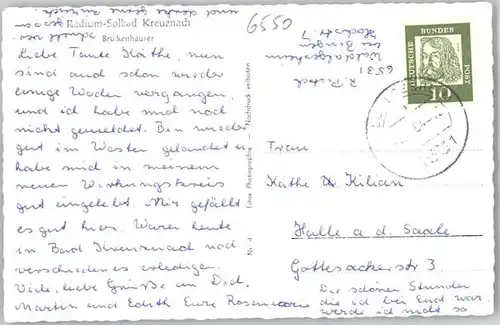 Radium-Solbad Kreuznach
Brückenhäuser
6550
Liebe Tante Käthe, nun
sind auch schon wieder
einige Wochen vergangen,
und ich habe mich noch
nicht gemeldet. Bin wieder
gut im Westen gelandet u.
habe mich in meinem
neuen Wirkungskreis
gut eingelebt. Mir gefällt
es gut hier. Waren heute
in Bad Kreuznach noch
verschiedenes erledigen.
Viele, liebe Grüsse an Dich,
Martin und Edith Eure
Echte Photographie
Nachdruck verboten
Nr. 4
6531
DEUTSCHE BUNDES POST
10
6531
Frau
Käthe Kilian
Halle a. d. Saale
Gottesackerstr. 3
Die schönen Stunden
die ich bei Euch war
werde ich nicht so